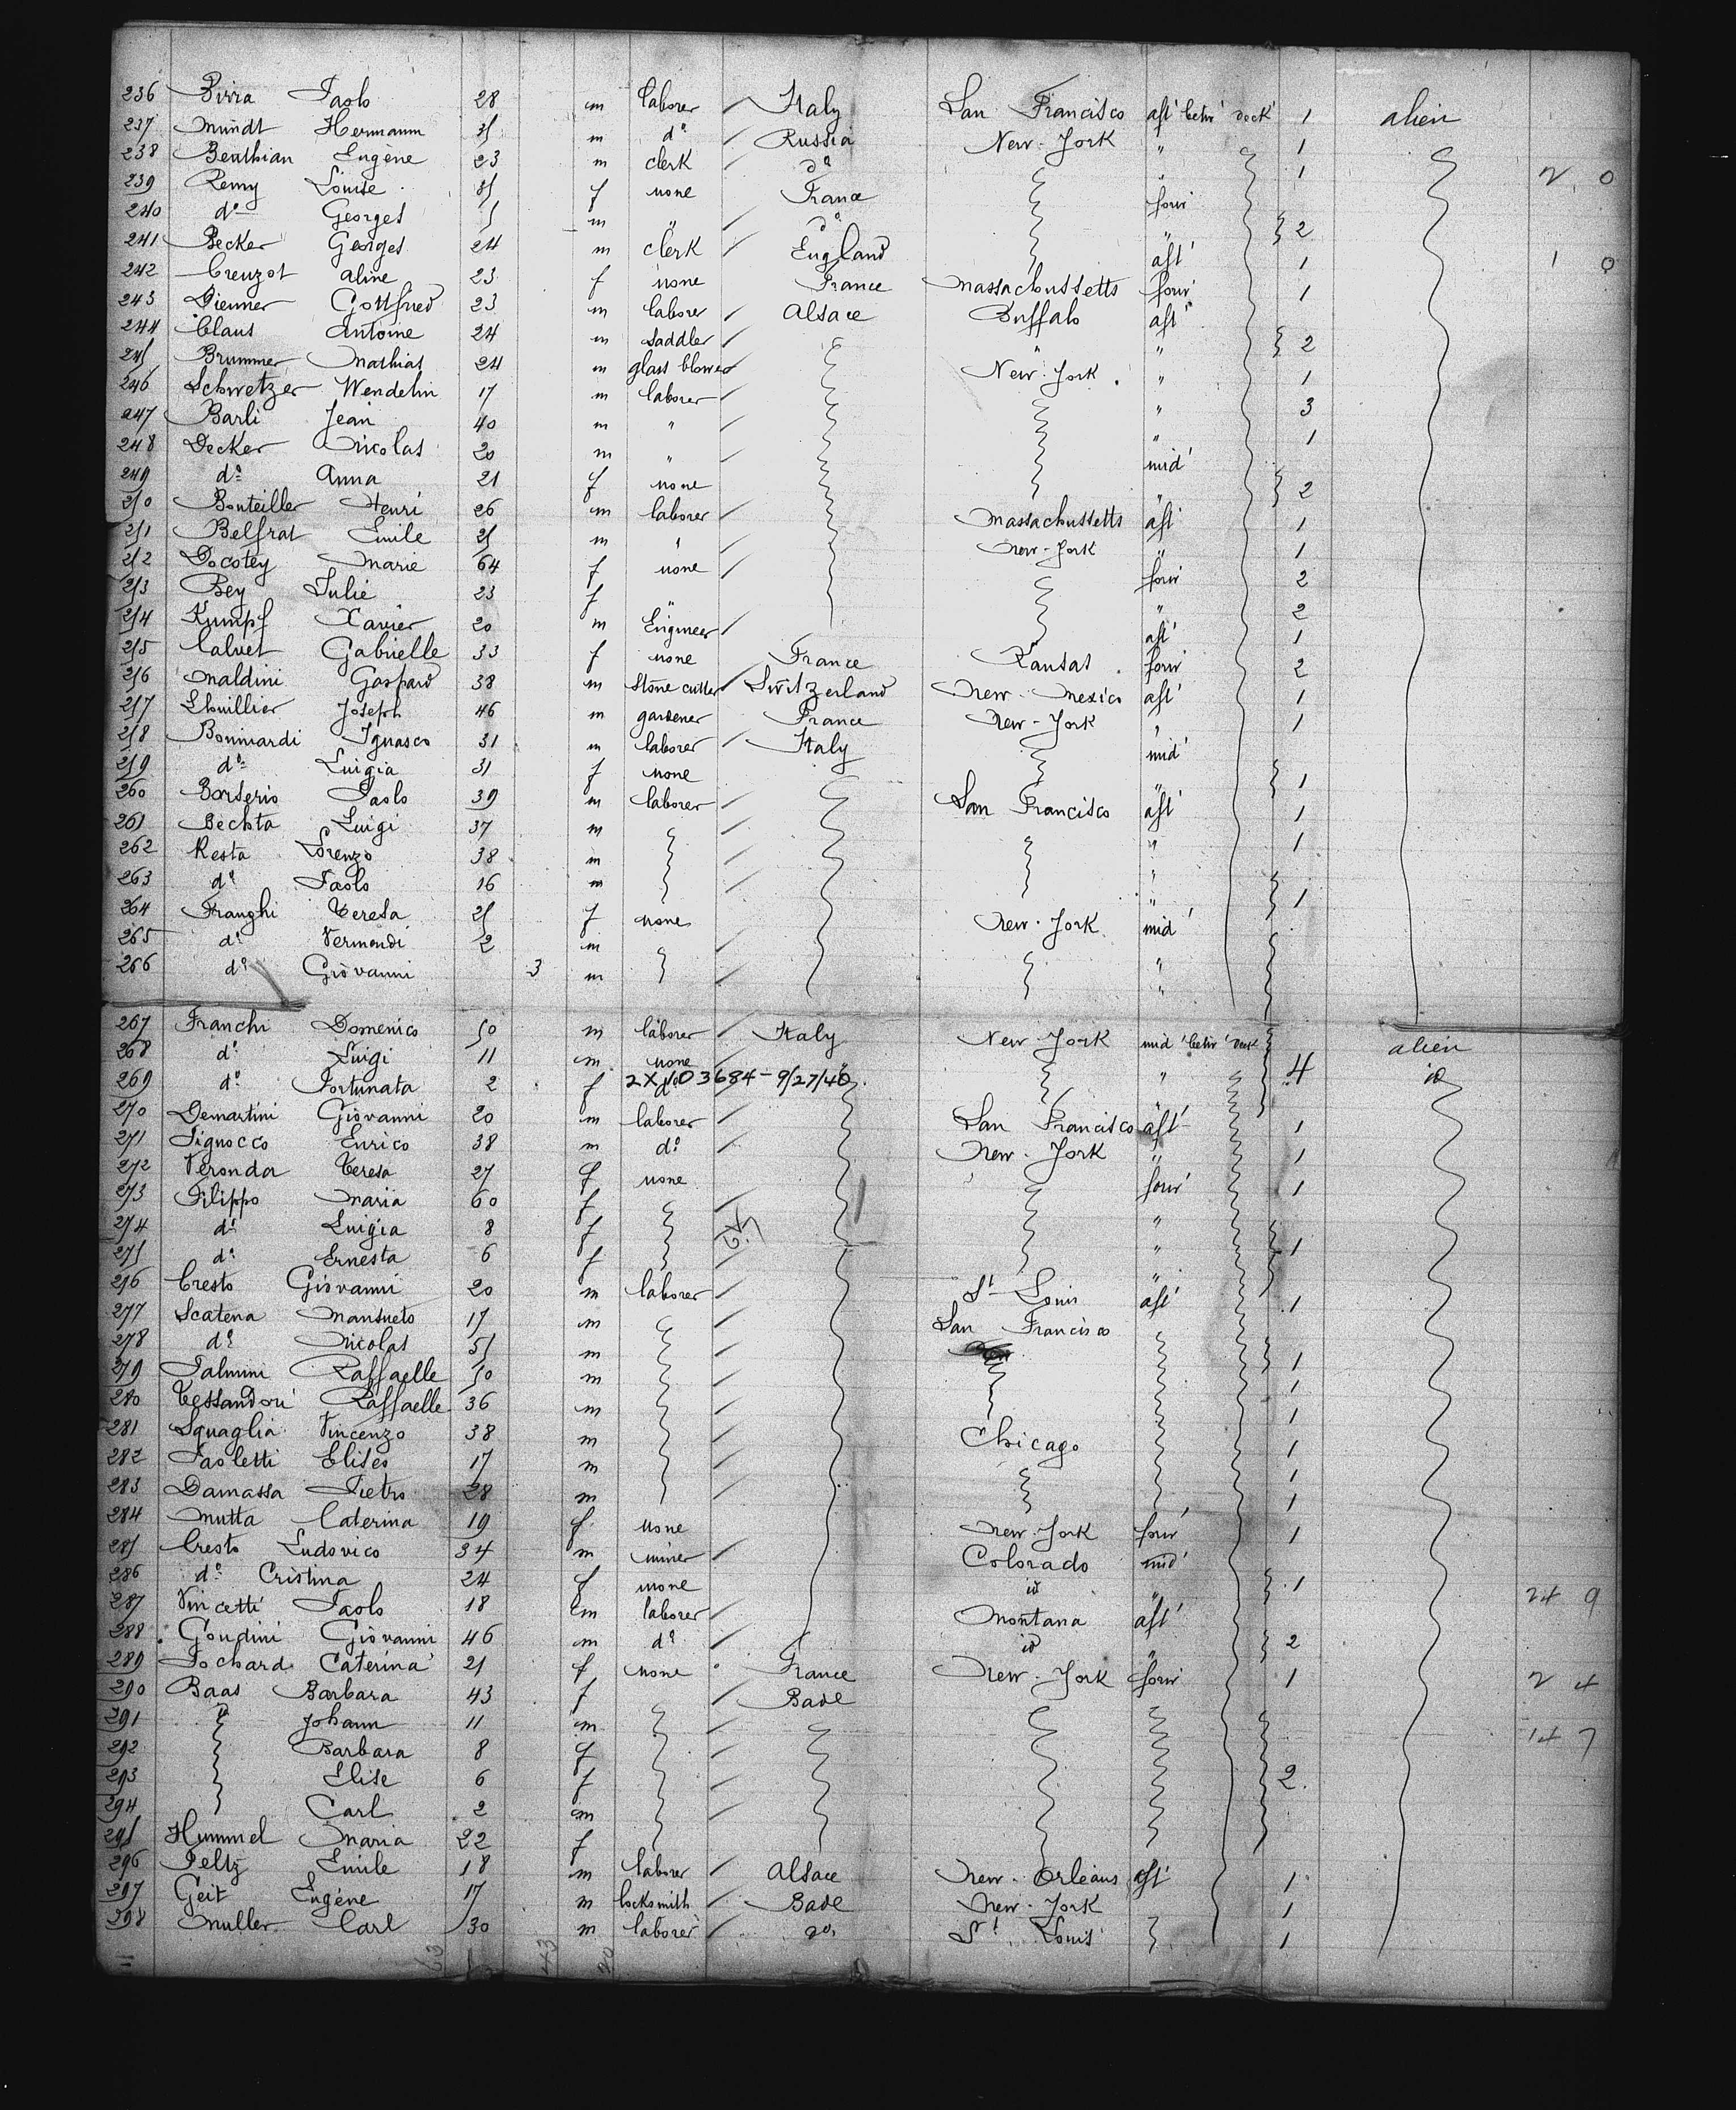 236 Birra Paolo 28 m laborer Italy San Francisco aft' betw' deck' 1 alien
237 Mundt Hermann 35 m d° Russia New-York " 1
238 Beuthian Eugène 23 m clerk d° " 1 2 0
239 Remy Louise 35 f none France forw'
240 d° Georges 5 m " d° " 2
241 Becker Georges 24 m clerk England aft' 1 1 0
242 Creuzot Aline 23 f none France Massachussetts forw' 1
243 Diemer Gottfried 23 m laborer Alsace Buffalo aft'
244 Claus Antoine 24 m saddler " " 2
245 Brummer Mathias 24 m glass blower New-York " 1
246 Schwetzer Wendelin 17 m laborer " 3
247 Barli Jean 40 m " " 1
248 Decker Nicolas 20 m " mid'
249 d° Anna 21 f none " 2
250 Bouteiller Henri 26 m laborer Massachussetts aft' 1
251 Belfrat Emile 25 m " New-York " 1
252 Docotey Marie 64 f none forw' 2
253 Bey Julie 23 f " " 2
254 Kumpf Xavier 20 m Engineer aft' 1
255 Calvet Gabrielle 33 f none France Kansas forw' 2
256 Maldini Gaspard 38 m stone cutter Switzerland New-Mexico aft' 1
257 Lhuillier Joseph 46 m gardener France New-York " 1
258 Bonniardi Ignasco 31 m laborer Italy mid'
259 d° Luigia 31 f none " 1
260 Borserio Paolo 39 m laborer San Francisco aft' 1
261 Bechta Luigi 37 m " 1
262 Resta Lorenzo 38 m "
263 d° Paolo 16 m " 1
264 Franghi Teresa 25 f none New-York mid'
265 d° Vermondi 2 m "
266 d° Giovanni 3 m "
267 Franchi Domenico 50 m laborer Italy New-York mid' betw' deck alien
268 d° Luigi 11 m none " 4 id
269 d° Fortunata 2 f d° 2X/103684-9/27/46. "
270 Demartini Giovanni 20 m laborer San Francisco aft' 1
271 Pignocco Enrico 38 m d° New-York " 1
272 Veronda Teresa 27 f none forw' 1
273 Filippo Maria 60 f "
274 d° Luigia 8 f " 1
275 d° Ernesta 6 f "
276 Cresto Giovanni 20 m laborer St Louis aft' 1
277 Scatena Mansueto 17 m San Francisco
278 d° Nicolas 51 m 1
279 Palmini Raffaelle 50 m 1
280 Tessandori Raffaelle 36 m 1
281 Squaglia Vincenzo 38 m Chicago 1
282 Paoletti Eliseo 17 m 1
283 Damassa Pietro 28 m 1
284 Mutta Caterina 19 f none New-York forw' 1
285 Cresto Ludovico 34 m miner Colorado mid'
286 d° Cristina 24 f none id " 1
287 Vincetti Paolo 18 m laborer Montana aft' 24 9
288 Gondini Giovanni 46 m d° id " 2
289 Pochard Caterina 21 f none France New-York forw' 1 2 4
290 Baas Barbara 43 f Bade
291 d Johann 11 m 14 7
292 Barbara 8 f
293 Elise 6 f 2
294 Carl 2 m
295 Hummel Maria 22 f
296 Peltz Emile 18 m laborer Alsace New-Orleans aft' 1
297 Geit Eugène 17 m locksmith Bade New-York 1
298 Muller Carl 30 m laborer d° St Louis 1
63 43 20